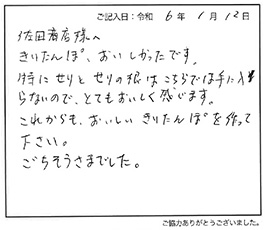 ご記入日：令和 6年 1月 12日
佐田商店様へ
きりたんぽ、おいしかったです。
特にせりとせりの根はこちらでは手に入
らないので、とてもおいしく感じます。
これからも、おいしいきりたんぽを作って
下さい。
ごちそうさまでした。
ご協力ありがとうございました。